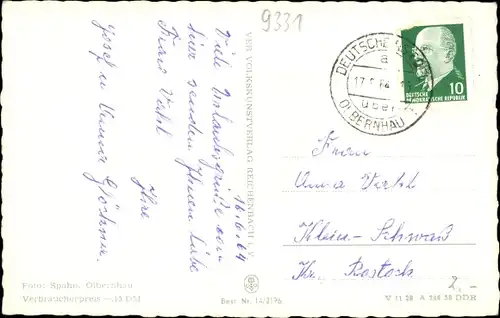 9331
16.6.64
Viele Urlaubsgrüße von
hier senden Ihnen liebe
Frau Vehl
Ihre
Josef u. Emma
VEB VOLKSKUNSTVERLAG REICHENBACH I. V.
DEUTSCHE
a
17.6.64
über
OLBERNHAU
10
DEUTSCHE
DEMOKRATISCHE REPUBLIK
Frau
Anna
Klein-Schwaß
Kr. Rostock
2,-
Foto: Spahn, Olbernhau
Verbraucherpreis
Best. Nr. 14/2196
V 11 28 A 286 58 DDR